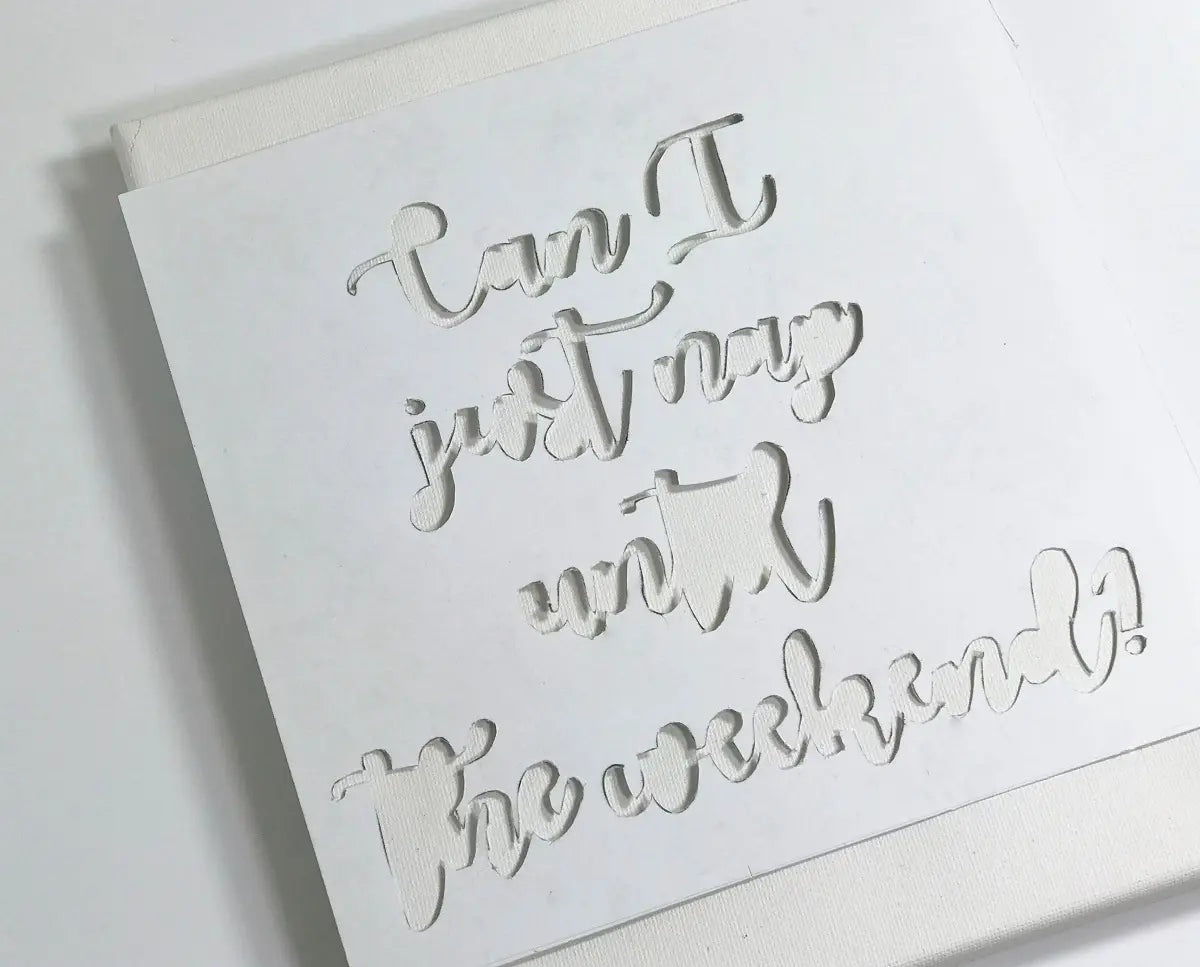 Can I
just nap
until
the weekend?